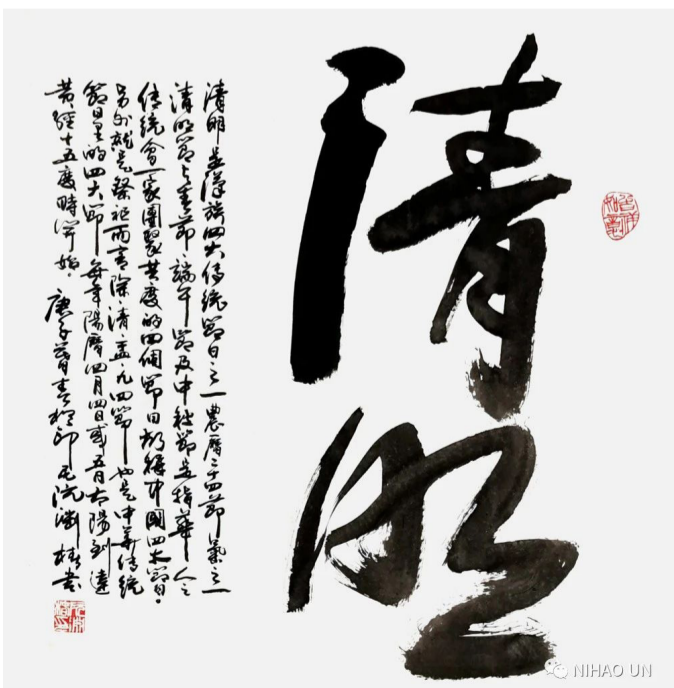 清明
清明是漢族四大傳統節日之一農曆二十四節氣之一
清明節与春節、端午節及中秋節是指華人之
傳統會一家團聚共度的四個節日都稱中國四大節日。
另外就是祭祀而言除、清、盂、九四節也是中華傳統
節日里的四大節每年陽曆四月四日或五日太陽到達
黃經十五度時開始。庚子暮春於印尼阮淵椿書
NIHAO UN